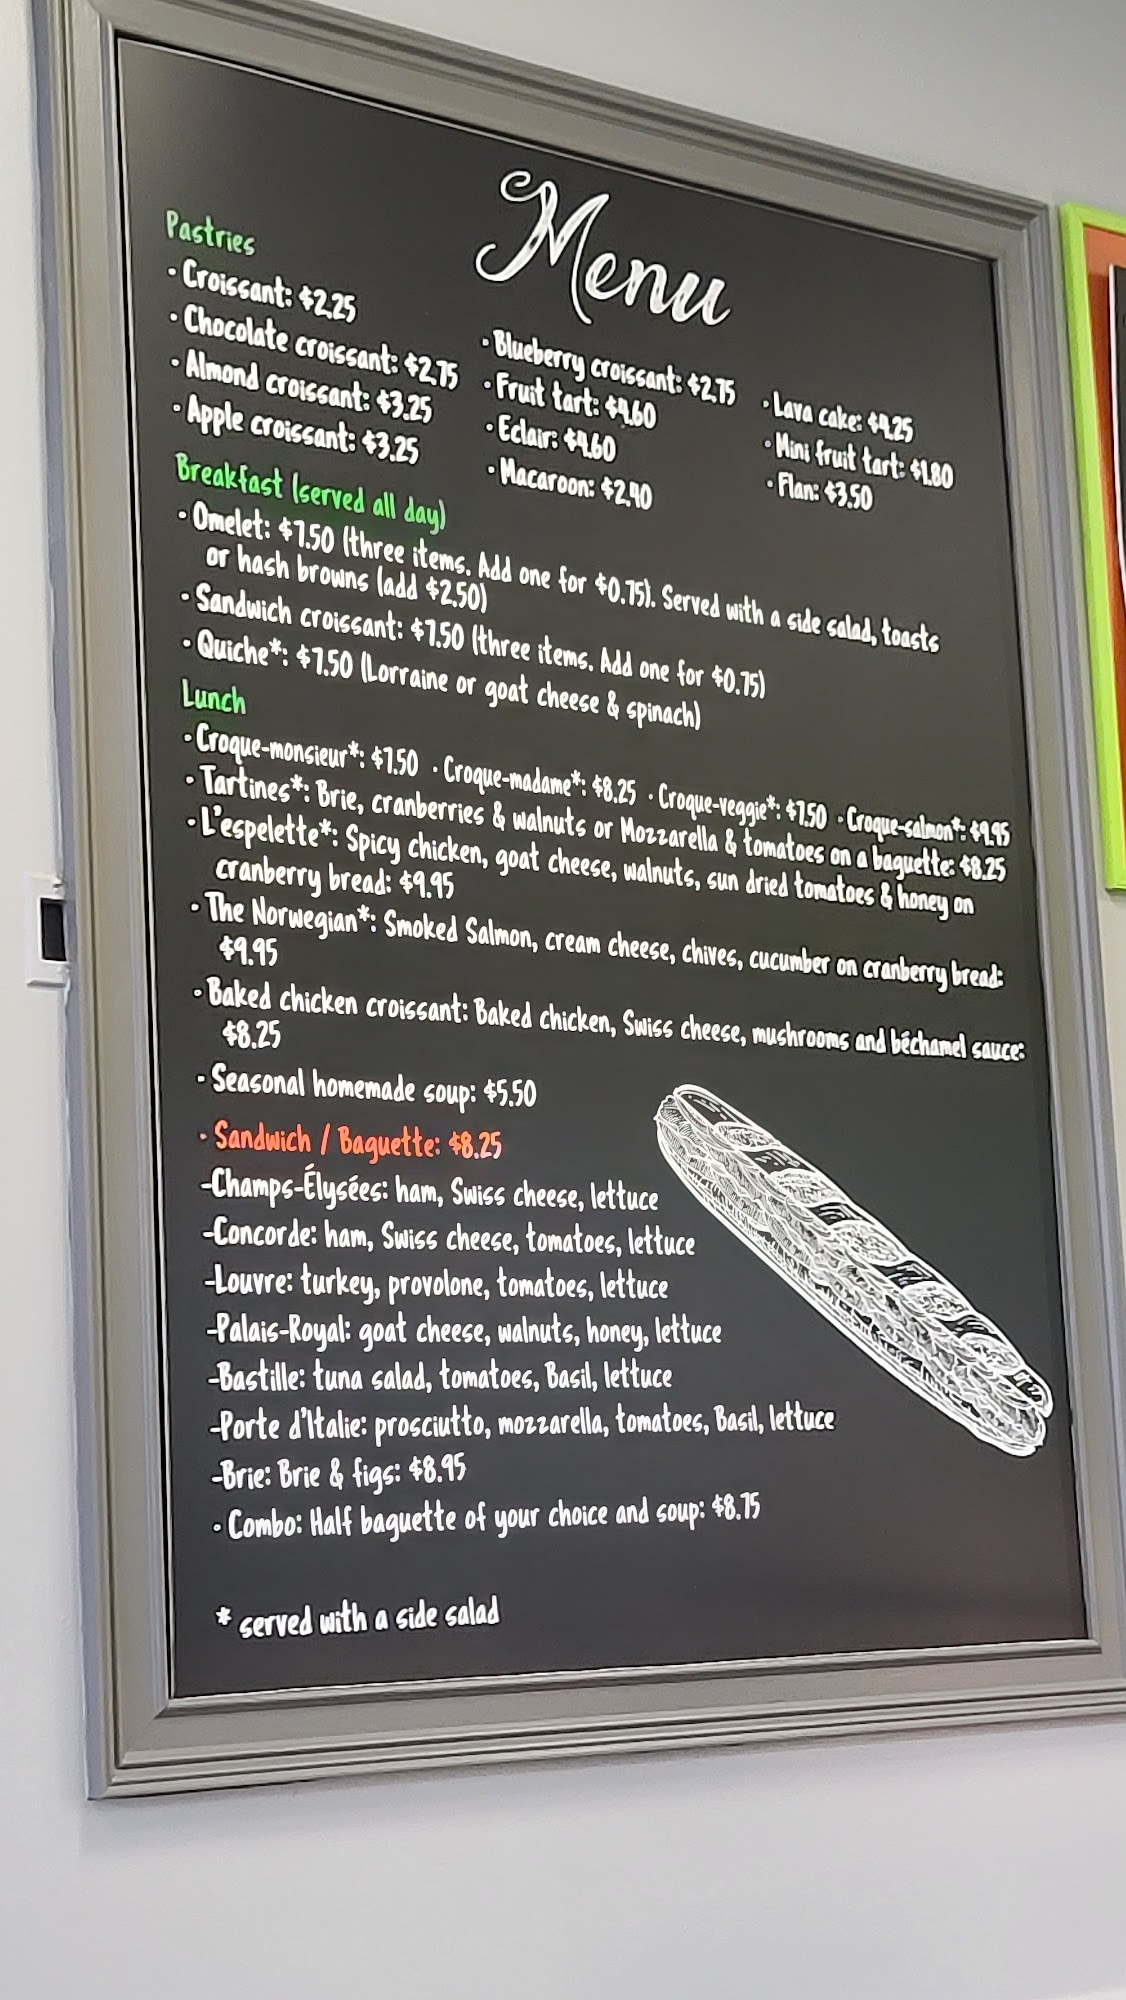 Menu
Pastries
· Croissant: $2.25
· Chocolate croissant: $2.75
· Almond croissant: $3.25
· Apple croissant: $3.25
· Blueberry croissant: $2.75
· Fruit tart: $4.60
· Eclair: $4.60
· Macaroon: $2.40
· Lava cake: $4.25
· Mini fruit tart: $1.80
· Flan: $3.50
Breakfast (served all day)
· Omelet: $7.50 (three items. Add one for $0.75). Served with a side salad, toasts
or hash browns (add $2.50)
· Sandwich croissant: $7.50 (three items. Add one for $0.75)
· Quiche*: $7.50 (Lorraine or goat cheese & spinach)
Lunch
· Croque-monsieur*: $7.50 · Croque-madame*: $8.25 · Croque-veggie*: $7.50 · Croque-salmon*: $9.95
· Tartines*: Brie, cranberries & walnuts or Mozzarella & tomatoes on a baguette: $8.25
· L'espelette*: Spicy chicken, goat cheese, walnuts, sun dried tomatoes & honey on
cranberry bread: $9.95
· The Norwegian*: Smoked Salmon, cream cheese, chives, cucumber on cranberry bread:
$9.95
· Baked chicken croissant: Baked chicken, Swiss cheese, mushrooms and béchamel sauce:
$8.25
· Seasonal homemade soup: $5.50
· Sandwich / Baguette: $8.25
-Champs-Élysées: ham, Swiss cheese, lettuce
-Concorde: ham, Swiss cheese, tomatoes, lettuce
-Louvre: turkey, provolone, tomatoes, lettuce
-Palais-Royal: goat cheese, walnuts, honey, lettuce
-Bastille: tuna salad, tomatoes, Basil, lettuce
-Porte d'Italie: prosciutto, mozzarella, tomatoes, Basil, lettuce
-Brie: Brie & figs: $8.95
· Combo: Half baguette of your choice and soup: $8.75
* served with a side salad